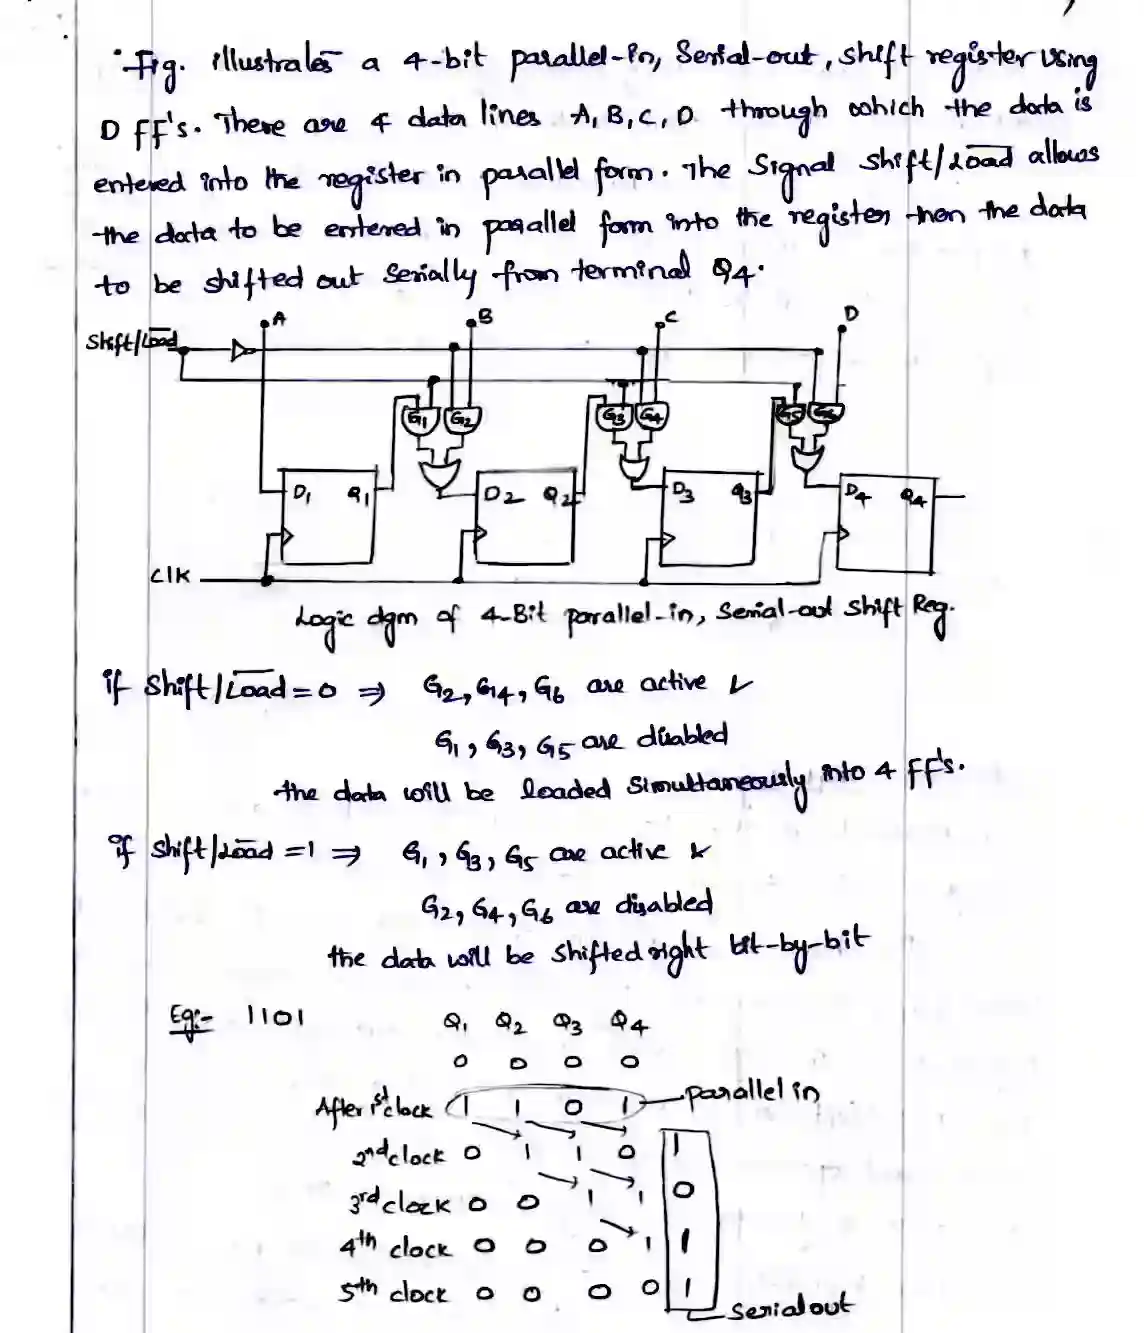 Fig. illustrates a 4-bit parallel-in, Serial-out, shift register using
D FF's. There are 4 data lines A, B, C, D through which the data is
entered into the register in parallel form. The Signal Shift/L̅o̅a̅d̅ allows
the data to be entered in parallel form into the register then the data
to be shifted out serially from terminal Q4.
A B C D
Shift/L̅o̅a̅d̅
G1 G2 G3 G4 G5 G6
D1 Q1 D2 Q2 D3 Q3 D4 Q4
Clk
Logic dgm of 4-Bit parallel-in, Serial-out Shift Reg.
if Shift/L̅o̅a̅d̅ = 0 ⇒ G2, G4, G6 are active ✓
G1, G3, G5 are disabled
the data will be loaded simultaneously into 4 FF's.
if Shift/L̅o̅a̅d̅ = 1 ⇒ G1, G3, G5 are active ✓
G2, G4, G6 are disabled
the data will be shifted right bit-by-bit
Eg:- 1101 Q1 Q2 Q3 Q4
0 0 0 0
After 1st clock 1 1 0 1 parallel in
2nd clock 0 1 1 0 1
3rd clock 0 0 1 1 0
4th clock 0 0 0 1 1
5th clock 0 0 0 0 1
Serial out